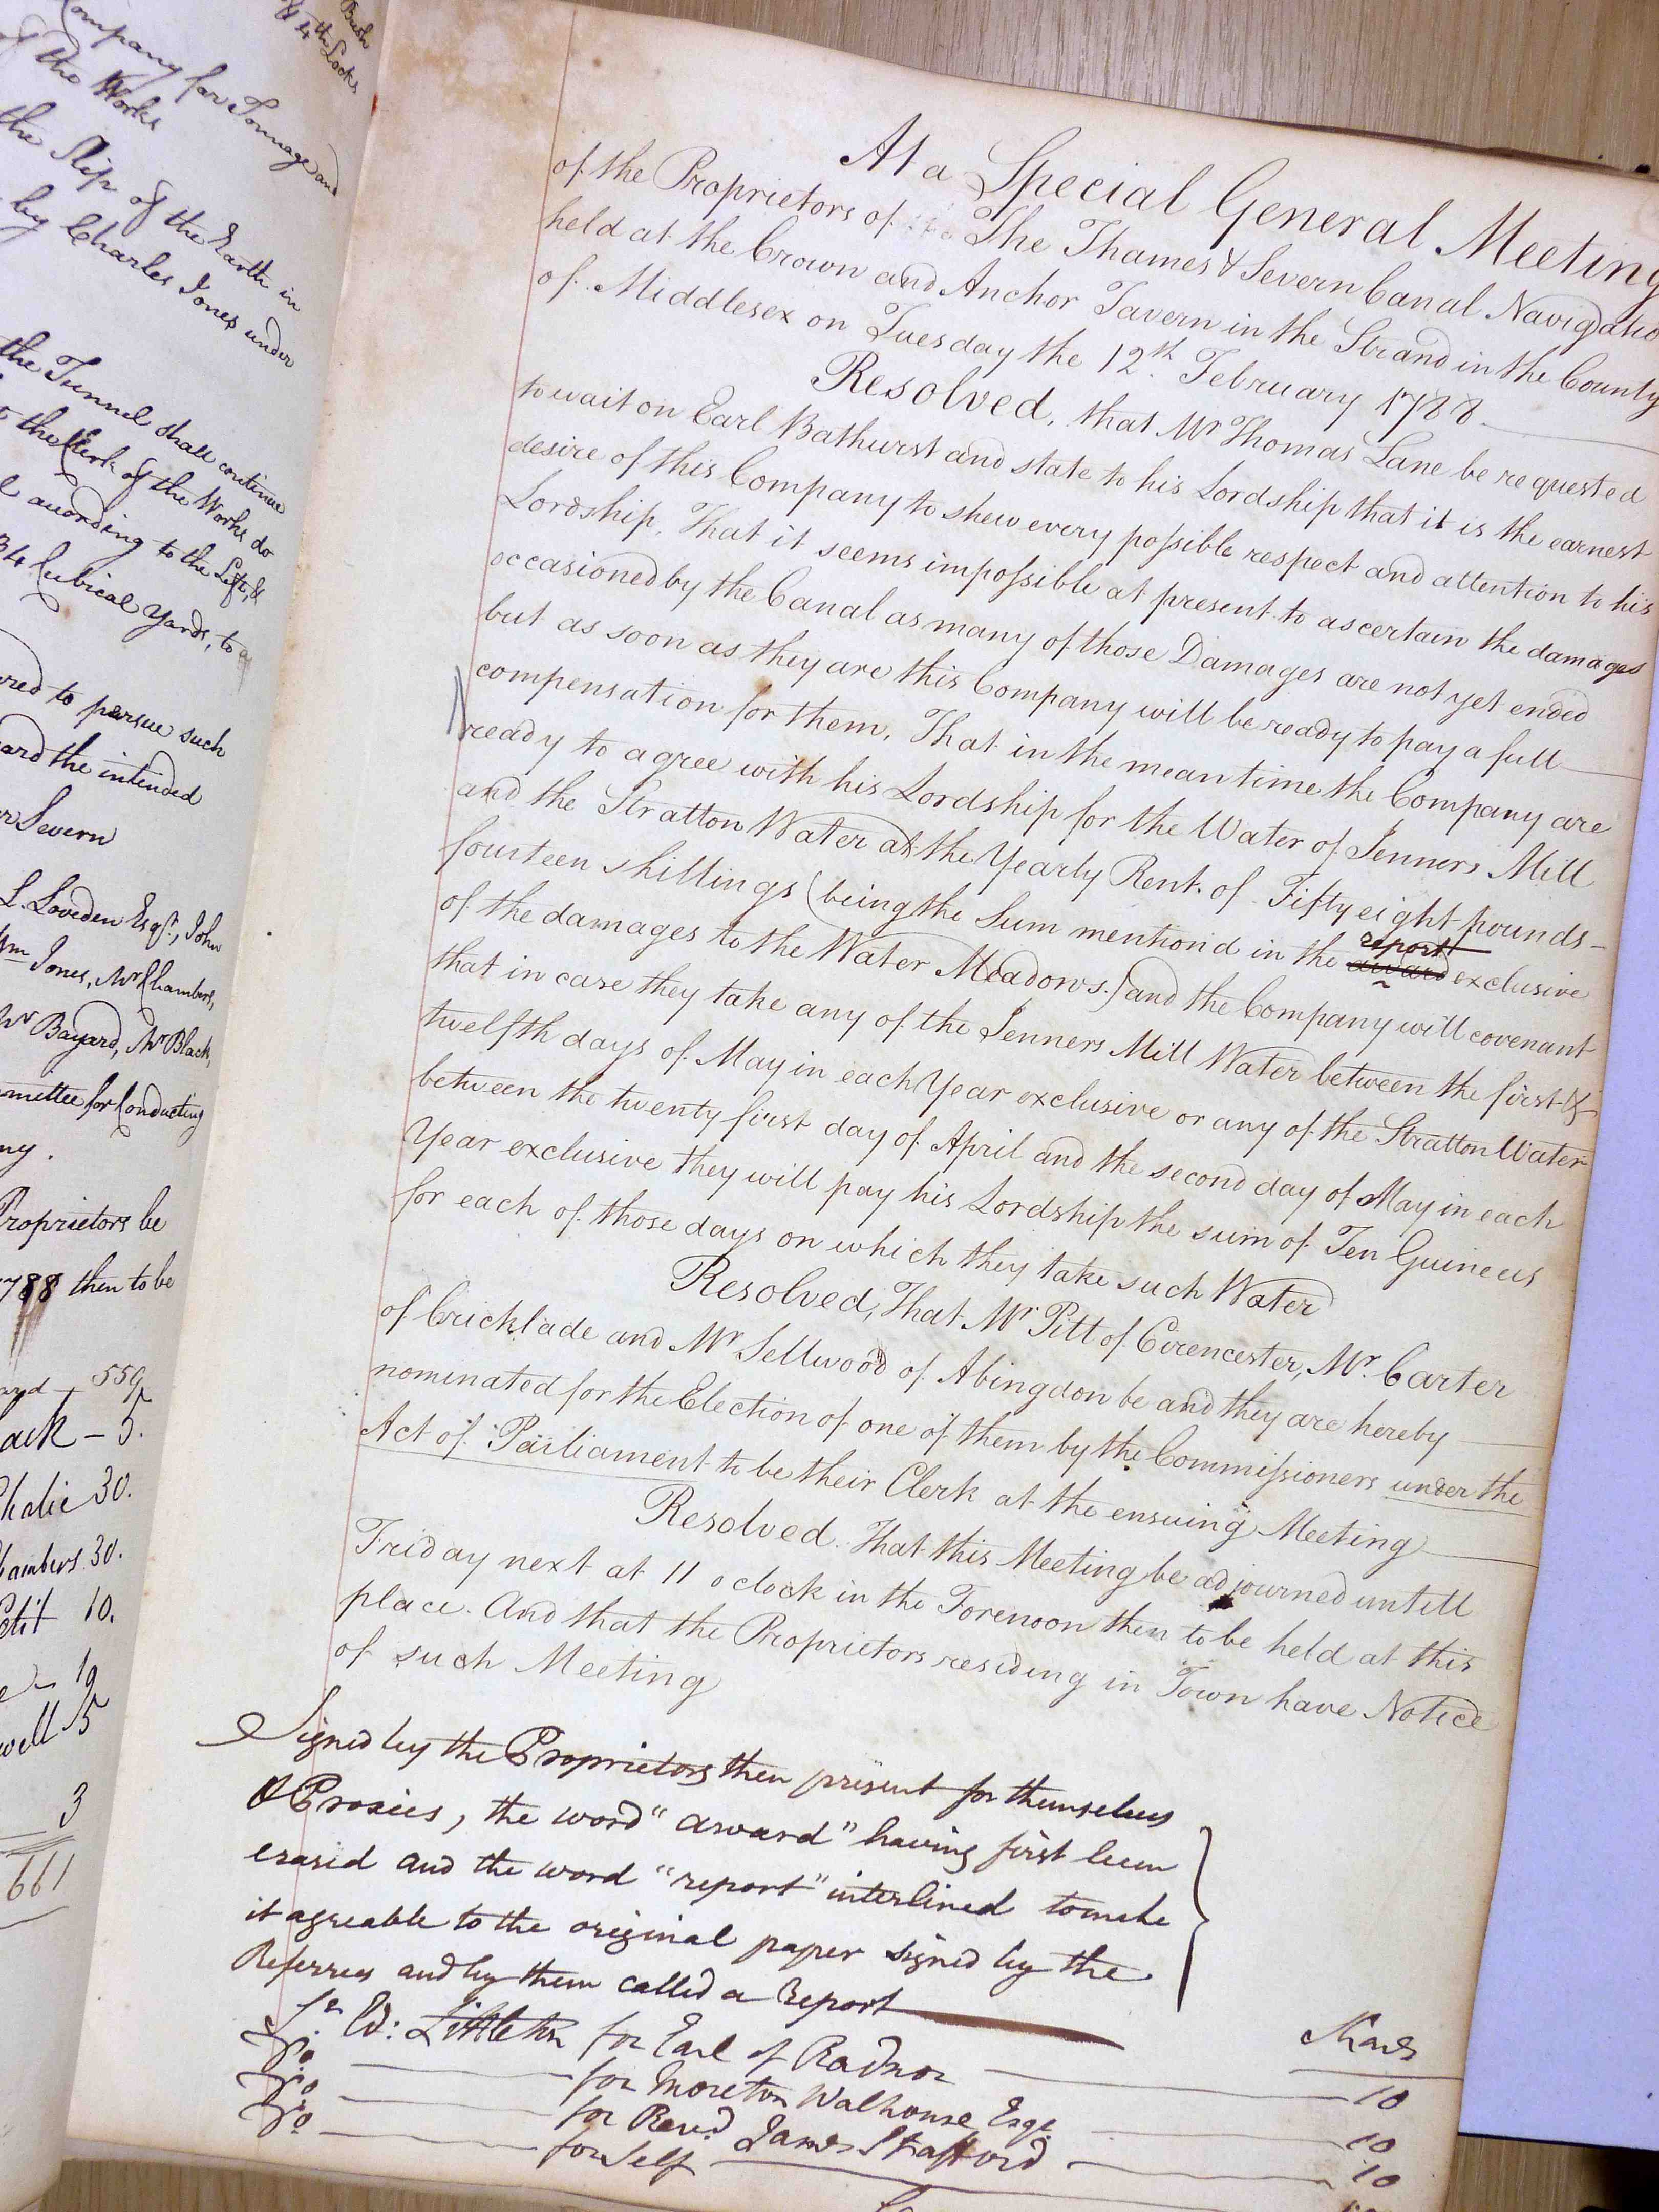 Bush
& 4th Locks
Company for Tonnage and
of the Works
the Slip of the Earth in
by Charles Jones under
the Tunnel shall continue
the Clerk of the Works do
according to the Lift, &
34 Cubical Yards, to
red to persue such
ard the intended
r Severn
L. Loveden Esqr., John
Wm Jones, Mr Chambers,
Mr Bayard, Mr Black,
mettee for Conducting
ny.
Proprietors be
1788 then to be
559
ack - 5.
Chalie 30.
hambers. 30.
Petit 10.
19
well 5
3
661
At a Special General Meeting
of the Proprietors of The Thames & Severn Canal Navigatio
held at the Crown and Anchor Tavern in the Strand in the County
of Middlesex on Tuesday the 12th. February 1788.
Resolved, that Mr Thomas Lane be requested
to wait on Earl Bathurst and state to his Lordship that it is the earnest
desire of this Company to shew every possible respect and attention to his
Lordship. That it seems impossible at present to ascertain the damages
occasioned by the Canal as many of those Damages are not yet ended
but as soon as they are this Company will be ready to pay a full
compensation for them. That in the mean time the Company are
ready to agree with his Lordship for the Water of Jenners Mill
and the Stratton Water at the Yearly Rent of Fifty eight pounds
fourteen shillings (being the Sum mention'd in the award report exclusive
of the damages to the Water Meadows.) and the Company will covenant
that in case they take any of the Jenners Mill Water between the first &
twelfth days of May in each Year exclusive or any of the Stratton Water
between the twenty first day of April and the second day of May in each
Year exclusive they will pay his Lordship the sum of Ten Guineas
for each of those days on which they take such Water
Resolved, That Mr Pitt of Cirencester, Mr. Carter
of Cricklade and Mr Sellwood of Abingdon be and they are hereby
nominated for the Election of one of them by the Commissioners under the
Act of Parliament to be their Clerk at the ensuing Meeting
Resolved. That this Meeting be adjourned untill
Friday next at 11 o clock in the Forenoon then to be held at this
place. And that the Proprietors residing in Town have Notice
of such Meeting
Signed by the Proprietors then present for themselves
& Proxies, the word "award" having first been
erased and the word "report" interlined to make
it agreable to the original paper signed by the
Referrees and by them called a Report
Shares
Sr Ed: Littleton for Earl of Radnor 10
Do for Moreton Walhouse Esqr. 10
Do for Revd. James Stafford 10
Do for Self